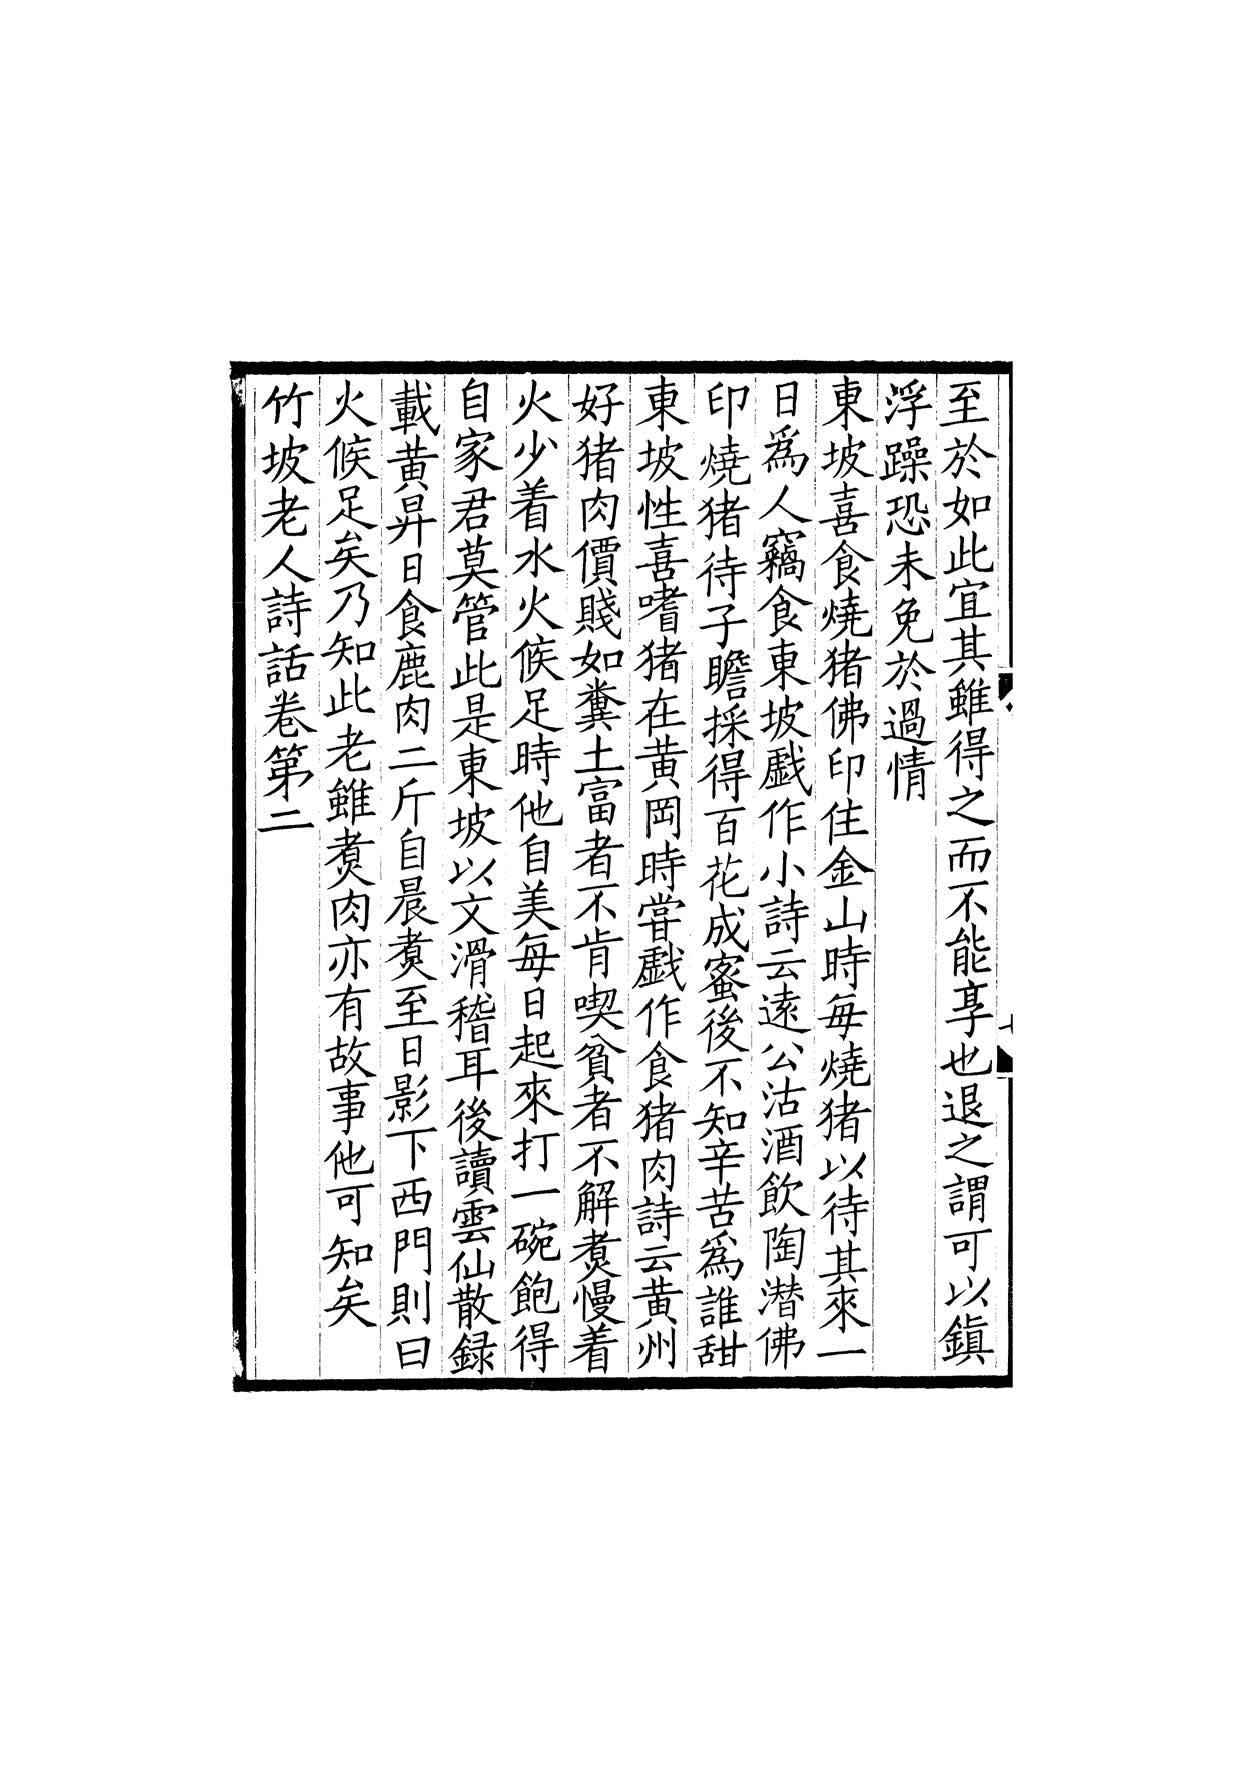 至於如此宜其雖得之而不能享也退之謂可以鎭
浮躁恐未免於過情
東坡喜食燒猪佛印住金山時每燒猪以待其來一
日爲人竊食東坡戲作小詩云遠公沽酒飲陶潛佛
印燒猪待子瞻採得百花成蜜後不知辛苦爲誰甜
東坡性喜嗜猪在黄岡時嘗戲作食猪肉詩云黄州
好猪肉價賤如糞土富者不肯喫貧者不解煑慢着
火少着水火候足時他自美每日起來打一碗飽得
自家君莫管此是東坡以文滑稽耳後讀雲仙散録
載黄昇日食鹿肉二斤自晨煑至日影下西門則曰
火候足矣乃知此老雖煑肉亦有故事他可知矣
竹坡老人詩話卷第二